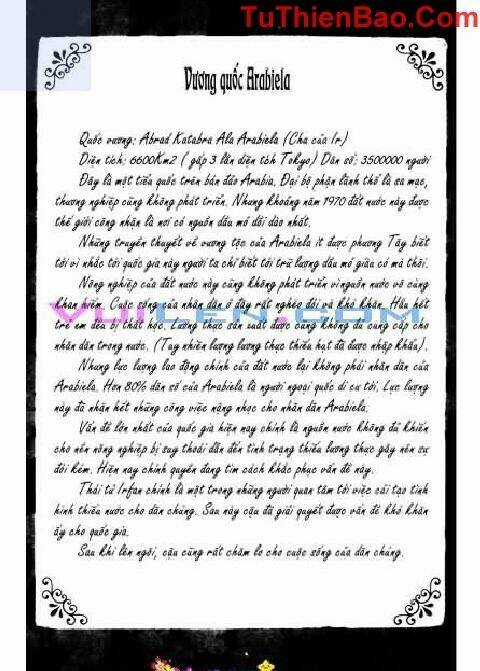 TuThienBao.Com
Vương quốc Arabiela
Quốc vương: Abrad Katabra Ala Arabiela (Cha của Ir)
Diện tích: 6600Km2 ( gấp 3 lần diện tích Tokyo) Dân số: 3500000 người
Đây là một tiểu quốc trên bán đảo Arabia. Đại bộ phận lãnh thổ là sa mạc,
thương nghiệp cũng không phát triển. Nhưng khoảng năm 1970 đất nước này được
thế giới công nhận là nơi có nguồn dầu mỏ dồi dào nhất.
Những truyền thuyết về vương tộc của Arabiela ít được phương Tây biết
tới vì nhắc tới quốc gia này người ta chỉ biết tới trữ lượng dầu mỏ giàu có mà thôi.
Nông nghiệp của đất nước này cũng không phát triển vì nguồn nước vô cùng
khan hiếm. Cuộc sống của nhân dân ở đây rất nghèo đói và khó khăn. Hầu hết
trẻ em đều bị thất học. Lương thực sản xuất được cũng không đủ cung cấp cho
nhân dân trong nước. (Tuy nhiên lượng lương thực thiếu hụt đã được nhập khẩu).
VUILEN.COM
Nhưng lực lượng lao động chính của đất nước lại không phải nhân dân của
Arabiela. Hơn 80% dân số của Arabiela là người ngoại quốc di cư tới. Lực lượng
này đã nhận hết những công việc nặng nhọc cho nhân dân Arabiela.
Vấn đề lớn nhất của quốc gia hiện nay chính là nguồn nước không đủ khiến
cho nền nông nghiệp bị suy thoái dẫn đến tình trạng thiếu lương thực gây nên sự
đói kém. Hiện nay chính quyền đang tìm cách khắc phục vấn đề này.
Thái tử Irfan chính là một trong những người quan tâm tới việc cải tạo tình
hình thiếu nước cho dân chúng. Sau này cậu đã giải quyết được vấn đề khó khăn
ấy cho quốc gia.
Sau khi lên ngôi, cậu cũng rất chăm lo cho cuộc sống của dân chúng.